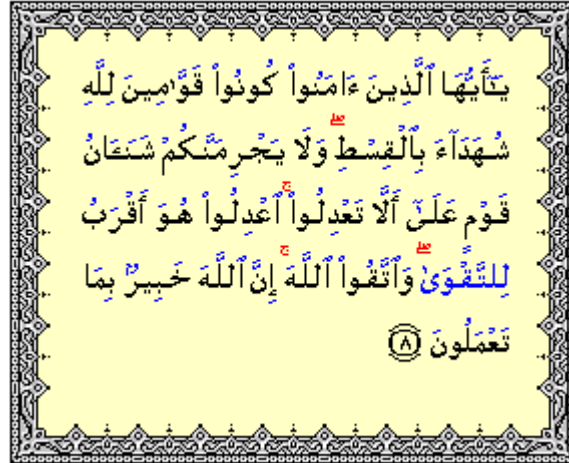 يَـٰٓأَيُّهَا ٱلَّذِينَ ءَامَنُوا۟ كُونُوا۟ قَوَّٰمِينَ لِلَّهِ
شُهَدَآءَ بِٱلْقِسْطِ ۖ وَلَا يَجْرِمَنَّكُمْ شَنَـَٔانُ
قَوْمٍ عَلَىٰٓ أَلَّا تَعْدِلُوا۟ ۚ ٱعْدِلُوا۟ هُوَ أَقْرَبُ
لِلتَّقْوَىٰ ۖ وَٱتَّقُوا۟ ٱللَّهَ ۚ إِنَّ ٱللَّهَ خَبِيرٌۢ بِمَا
تَعْمَلُونَ ٨